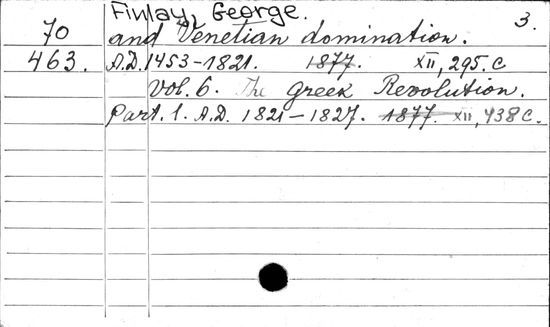 Finlay, George. 3.
70 and Venetian domination.
463. A.D. 1453-1821. 1877. XII, 295. c
Vol. 6. The Greek Revolution.
Part. 1. A.D. 1821-1827. 1877. XII, 438 c.